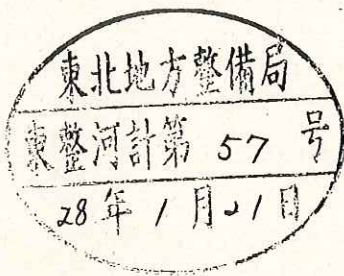 東北地方整備局
東整河計第 57 号
28年1月21日